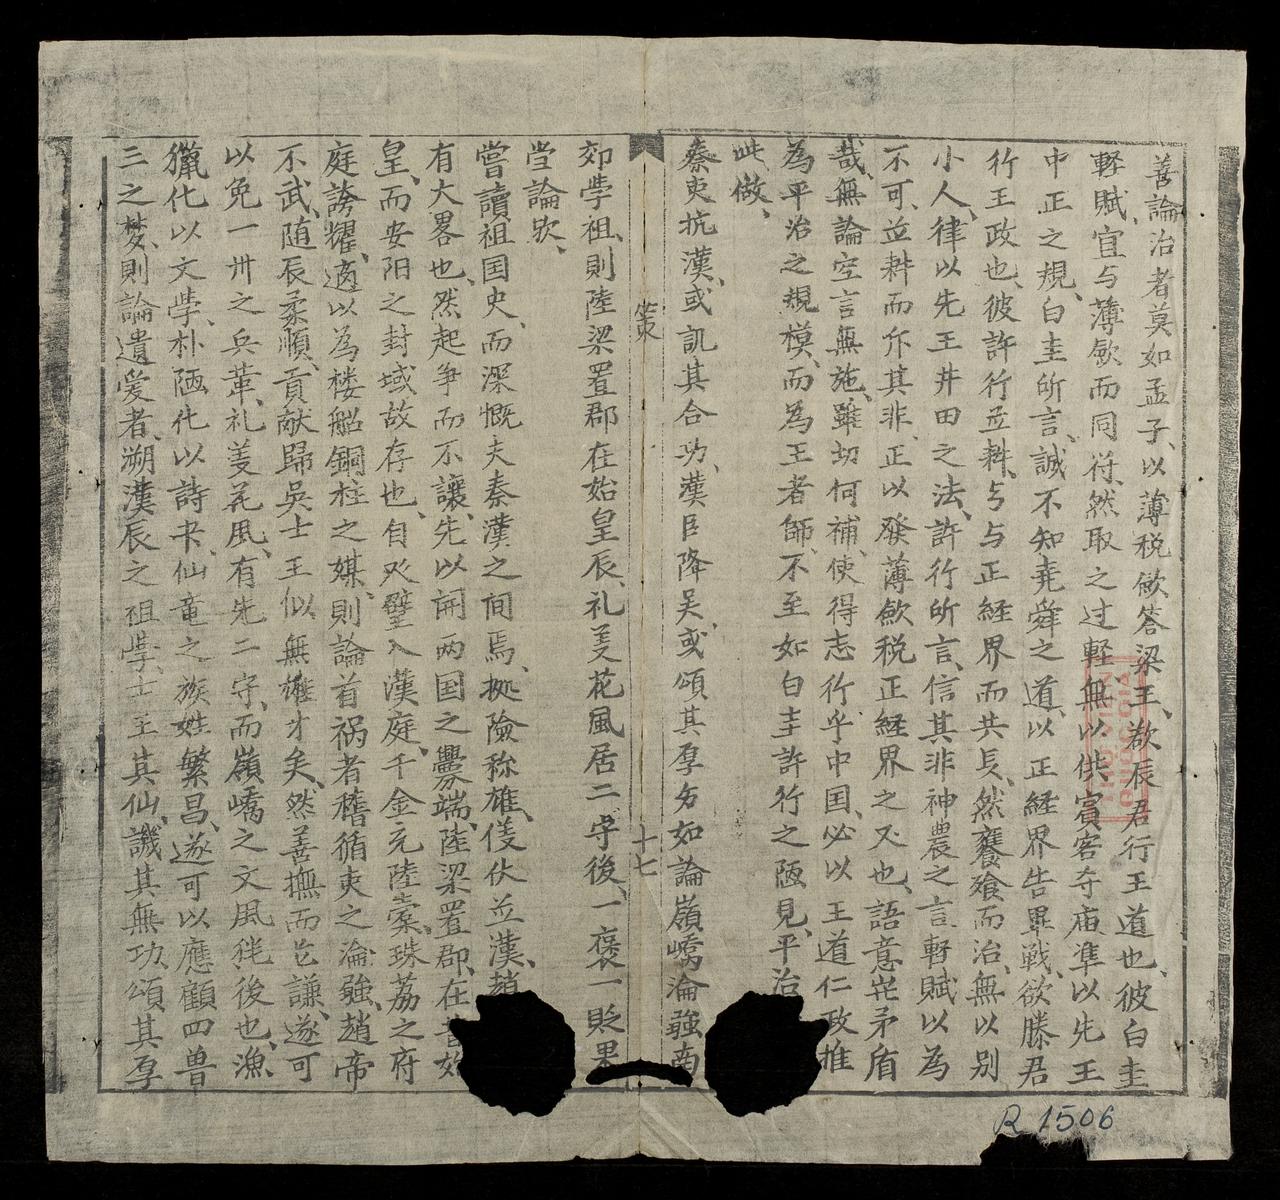 善論治者莫如孟子、以薄税歛答梁王、欲辰君行王道也、彼白圭
輕賦、宜与薄歛而同符、然取之过輕、無以供賓客寺庙準以先王
中正之規、白圭所言、誠不知堯舜之道、以正経界告畢戦、欲滕君
行王政也、彼許行並耕、与正経界而共長、然饔飱而治、無以别
小人、律以先王井田之法、許行所言、信其非神農之言、輕賦以為
不可、並耕而斥其非、正以發薄歛税正経界之又也、語意豈矛盾
哉、無論空言無施、雖切何補、使得志行乎中国、必以王道仁政推
為平治之規模、而為王者師、不至如白圭許行之陋見、平治
此、做、
秦吏抗漢、或訊其合功、漢臣降吴、或頌其厚、如論嶺嶠淪強南
郊學祖、則陸梁置郡在始皇辰、礼姜花風居二守後、一褒一貶果
岂論欤、
嘗讀祖国史、而深慨夫秦漢之间焉、拠險称雄、伎並漢、趙
有大畧也、然起争而不讓、先以開两国之釁端、陸梁置郡、在
皇、而安阳之封域故存也、自璧入漢庭、千金充陸橐、珠荔之府
庭誇耀、適以為楼船銅柱之媒、則論首祸者稽循吏之淪強、趙帝
不武、随辰柔順、貢献歸吴士王似無雄才矣、然善撫而謙、遂可
以免一卅之兵革、礼姜花風、有先二守、而嶺嶠之文風後也、漁
獵化以文學、朴陋化以詩书、仙竜之族姓繁昌、遂可以應顧四兽
三之梦、則論遺爱者、溯漢辰之祖學、士王其仙、譏其無功、頌其厚
策
十七
THƯ VIỆN
QUỐC GIA
R 1506